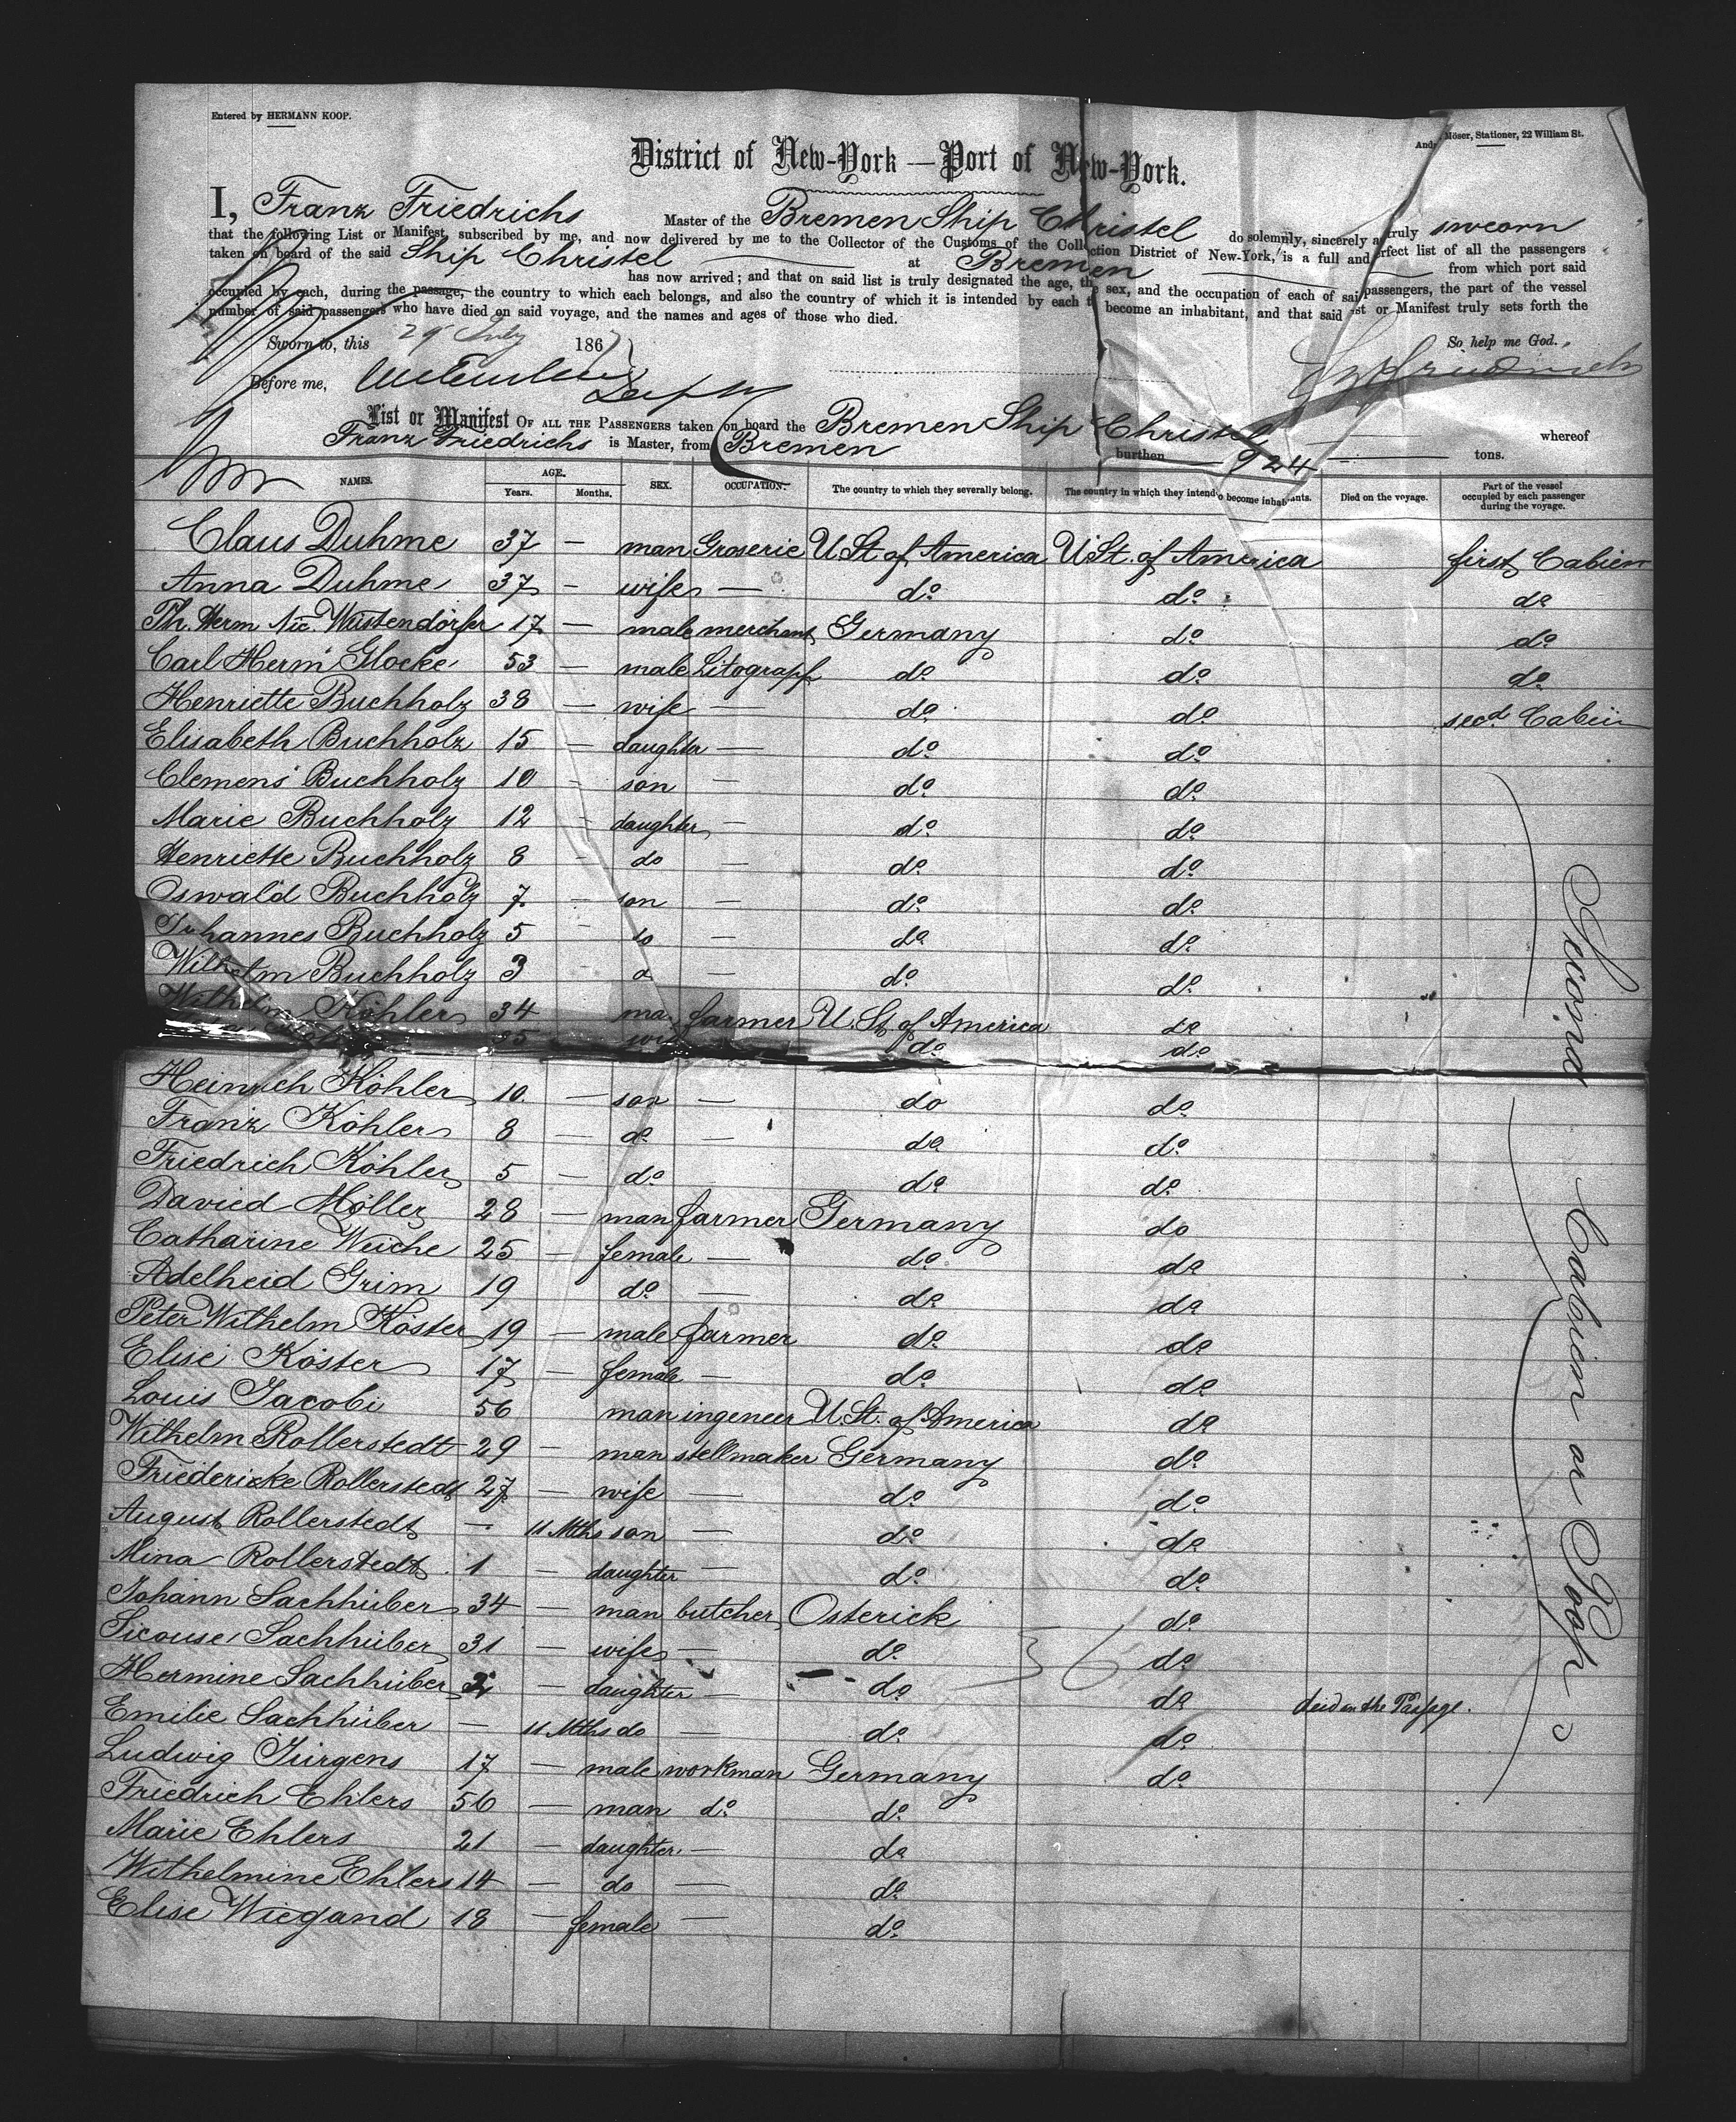 Entered by HERMANN KOOP.
Möser, Stationer, 22 William St.
District of New-York—Port of New-York.
I, Franz Friedrichs Master of the Bremen Ship Christel do solemnly, sincerely a truly sworn
that the following List or Manifest, subscribed by me, and now delivered by me to the Collector of the Customs of the Collection District of New-York, is a full and erfect list of all the passengers
taken on board of the said Ship Christel at Bremen from which port said
has now arrived; and that on said list is truly designated the age, the sex, and the occupation of each of sai passengers, the part of the vessel
occupied by each, during the passage, the country to which each belongs, and also the country of which it is intended by each t become an inhabitant, and that said ist or Manifest truly sets forth the
number of said passengers who have died on said voyage, and the names and ages of those who died.
Sworn to, this 29 July 1867 So help me God.
Before me,
List or Manifest OF ALL THE PASSENGERS taken on board the Bremen Ship Christel whereof
Franz Friedrichs is Master, from Bremen burthen 924 tons.
NAMES. AGE. Years. Months. SEX. OCCUPATION. The country to which they severally belong. The country in which they intend o become inhabitants. Died on the voyage. Part of the vessel occupied by each passenger during the voyage.
Claus Duhme 37 — man Groserie U St. of America U St. of America first Cabien
Anna Duhme 37 — wife — do do do
Th. Herm Nic. Wüstendörfer 17 — male merchant Germany do do
Carl Herm Glocke 53 — male Litograpf do do do
Henriette Buchholz 38 — wife — do do secd Cabein
Elisabeth Buchholz 15 — daughter — do do
Clemens Buchholz 10 — son — do do
Marie Buchholz 12 — daughter — do do
Henriette Buchholz 8 — do — do do
Oswald Buchholz 7 — son — do do
Johannes Buchholz 5 — do — do do
Wilhelm Buchholz 3 — do — do do
Wilhelm Köhler 34 man farmer U. St. of America do
35 wife do do
Heinrich Köhler 10 — son — do do
Franz Köhler 8 — do — do do
Friedrich Köhler 5 — do do do
Davied Möller 28 — man farmer Germany do
Catharine Weiche 25 — female — do do
Adelheid Grim 19 do — do do
Peter Wilhelm Köster 19 — male farmer do do
Elise Köster 17 — female — do do
Louis Jacobi 56 man ingeneer U. St. of America do
Wilhelm Rollerstedt 29 — man stellmaker Germany do
Friedericke Rollerstedt 27 — wife — do do
August Rollerstedt — 11 Mths son — do do
Mina Rollerstedt 1 — daughter — do do
Johann Sachhuber 34 — man butcher Osterick do
Sachhuber 31 — wife — do do
Hermine Sachhuber — daughter — do do died on the Passage.
Emilie Sachhuber — 11 Mths do — do do
Ludwig Jürgens 17 — male workman Germany do
Friedrich Ehlers 56 — man do do
Marie Ehlers 21 — daughter — do
Wilhelmine Ehlers 14 — do — do
Elise Wiegand 18 — female — do
36
Second Cabien or Poop